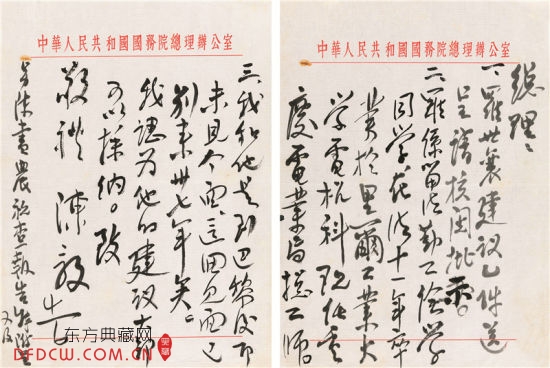 中華人民共和國國務院總理辦公室
總理：
一、羅世襄建議乙件送
呈請核閱批示。
二、羅係留法勤工儉學
同學在法十一年卒
業於里爾工業大
學電機科現任重
慶電業局總工師。
中華人民共和國國務院總理辦公室
三、我和他是到巴黎後即
未見今面，這回見面已
別來卅七年矣。
我認為他的建議大都
可以採納。致
敬禮 陳毅
查報告
又及
东方典藏网
DFDCW.COM.CN